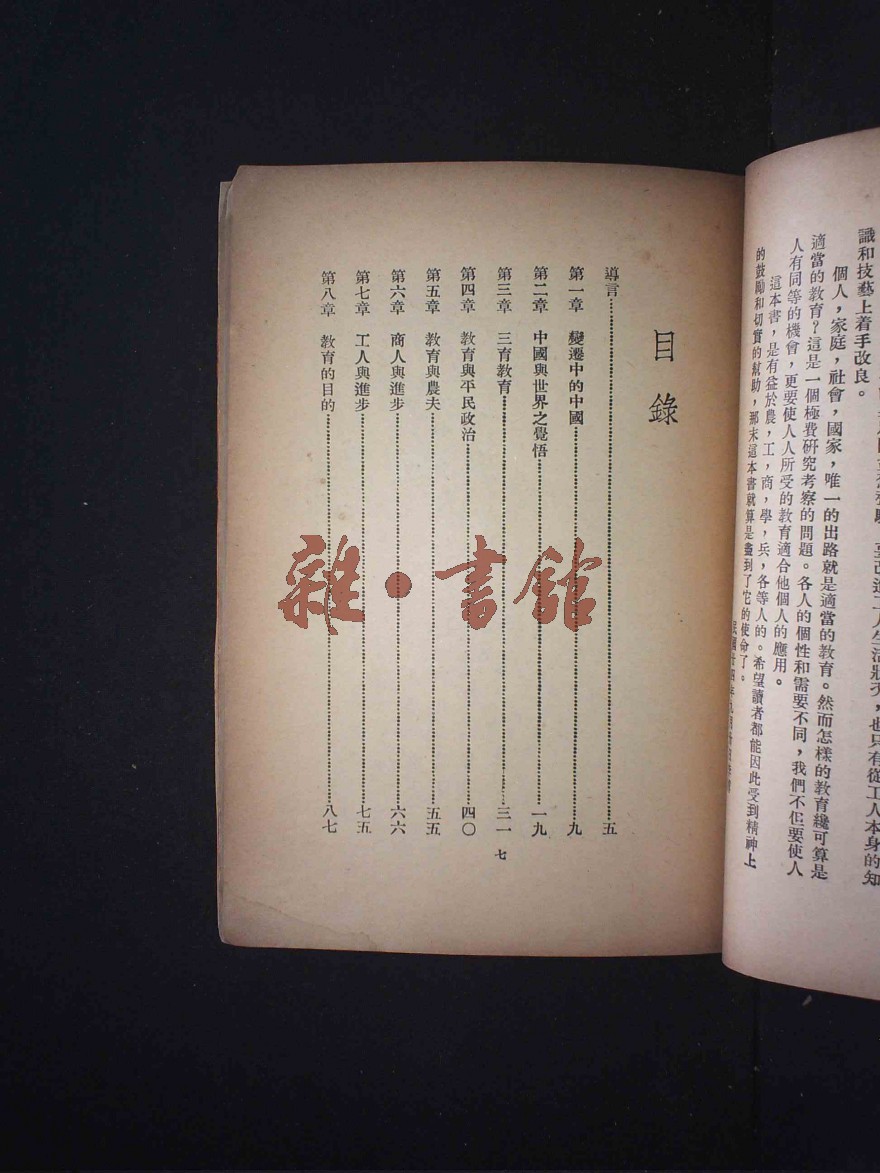 識和技藝上着手改良。
個人，家庭，社會，國家，唯一的出路就是適當的教育。然而怎樣的教育纔可算是
適當的教育？這是一個極費研究考察的問題。各人的個性和需要不同，我們不但要使人
人有同等的機會，更要使人人所受的教育適合他個人的應用。
這本書，是有益於農，工，商，學，兵，各等人的。希望讀者都能因此受到精神上
的鼓勵和切實的幫助，那末這本書就算是盡到了它的使命了。
目錄
導言……五
第一章 變遷中的中國……九
第二章 中國與世界之覺悟……一九
第三章 三育教育……三一
第四章 教育與平民政治……四〇
第五章 教育與農夫……五五
第六章 商人與進步……六六
第七章 工人與進步……七五
第八章 教育的目的……八七
七
雜·書館